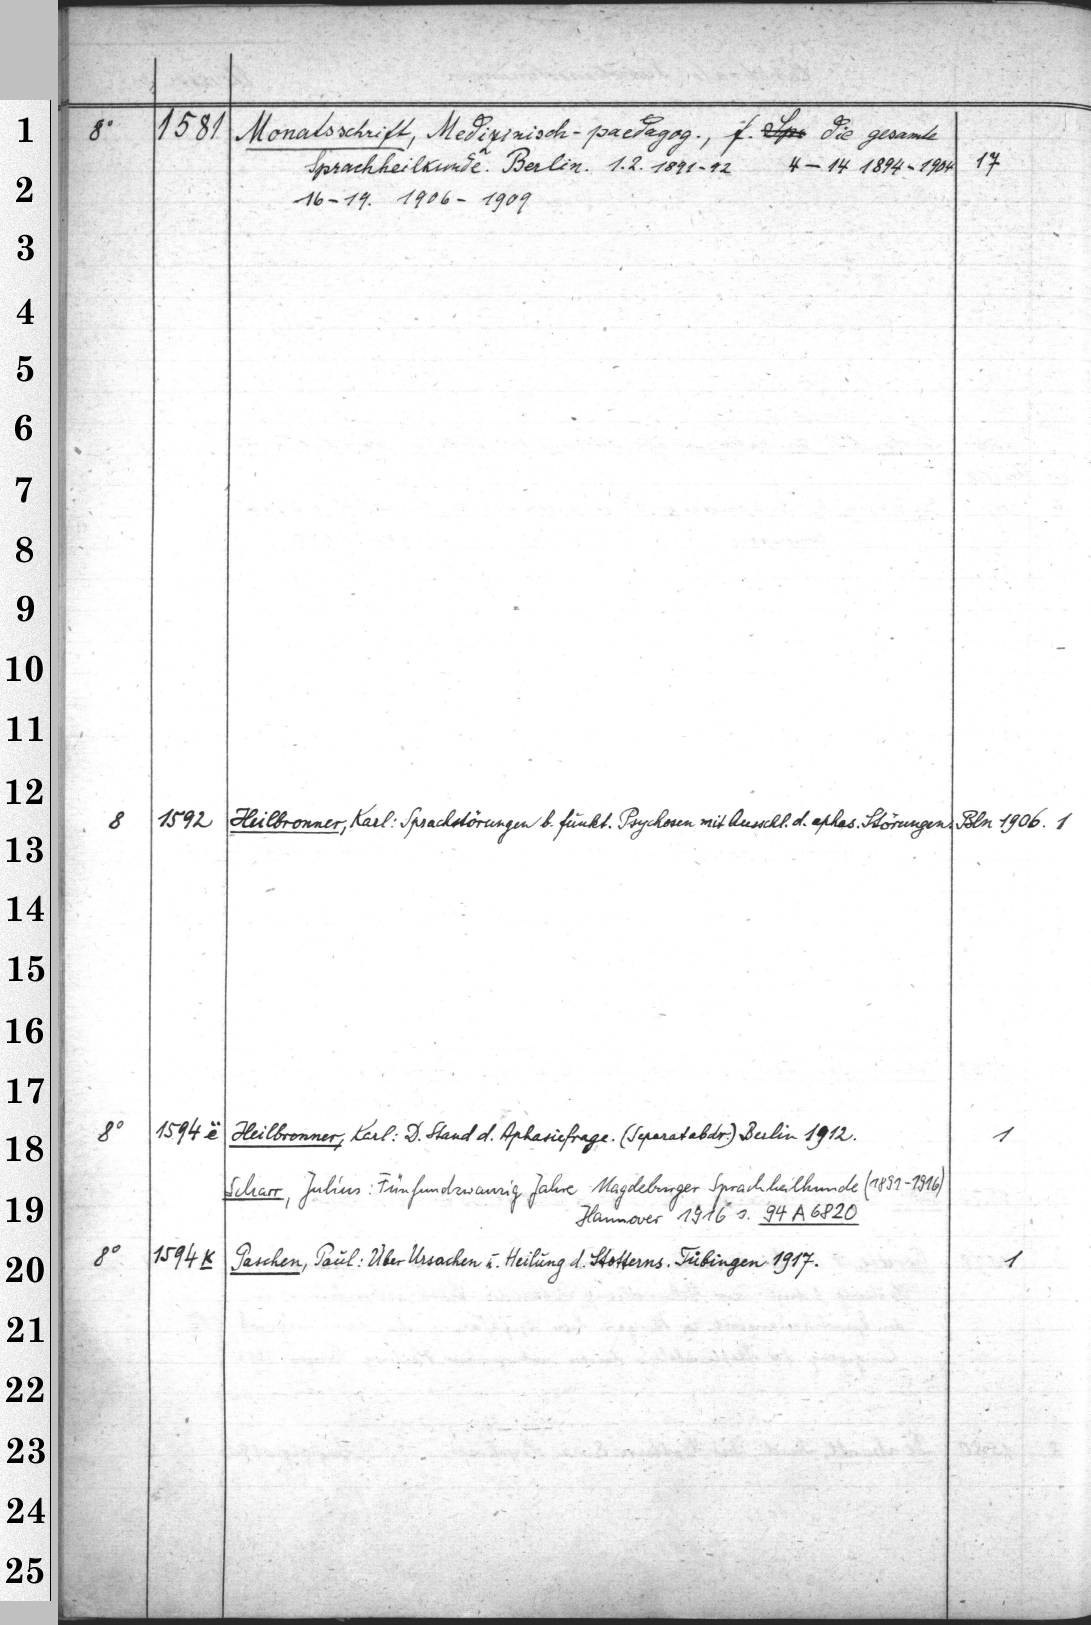 1
8° 1581 Monatsschrift, Medizinisch-paedagog., f. Spr die gesamte
Sprachheilkunde. Berlin. 1.2. 1891-92 4-14 1894-1904 17
2
16-19. 1906-1909
3
4
5
6
7
8
9
10
11
12
8 1592 Heilbronner, Karl: Sprachstörungen b. funkt. Psychosen mit Ausschl. d. aphas. Störungen. Bln 1906. 1
13
14
15
16
17
8° 1594 ë Heilbronner, Karl: D. Stand d. Aphasiefrage. (Separatabdr.) Berlin 1912. 1
18
Scharr, Julius: Fünfundzwanzig Jahre Magdeburger Sprachheilkunde (1891-1916)
19
Hannover 1916 s. 94 A 6820
8° 1594 K Paschen, Paul: Über Ursachen u. Heilung d. Stotterns. Tübingen 1917. 1
20
21
22
23
24
25